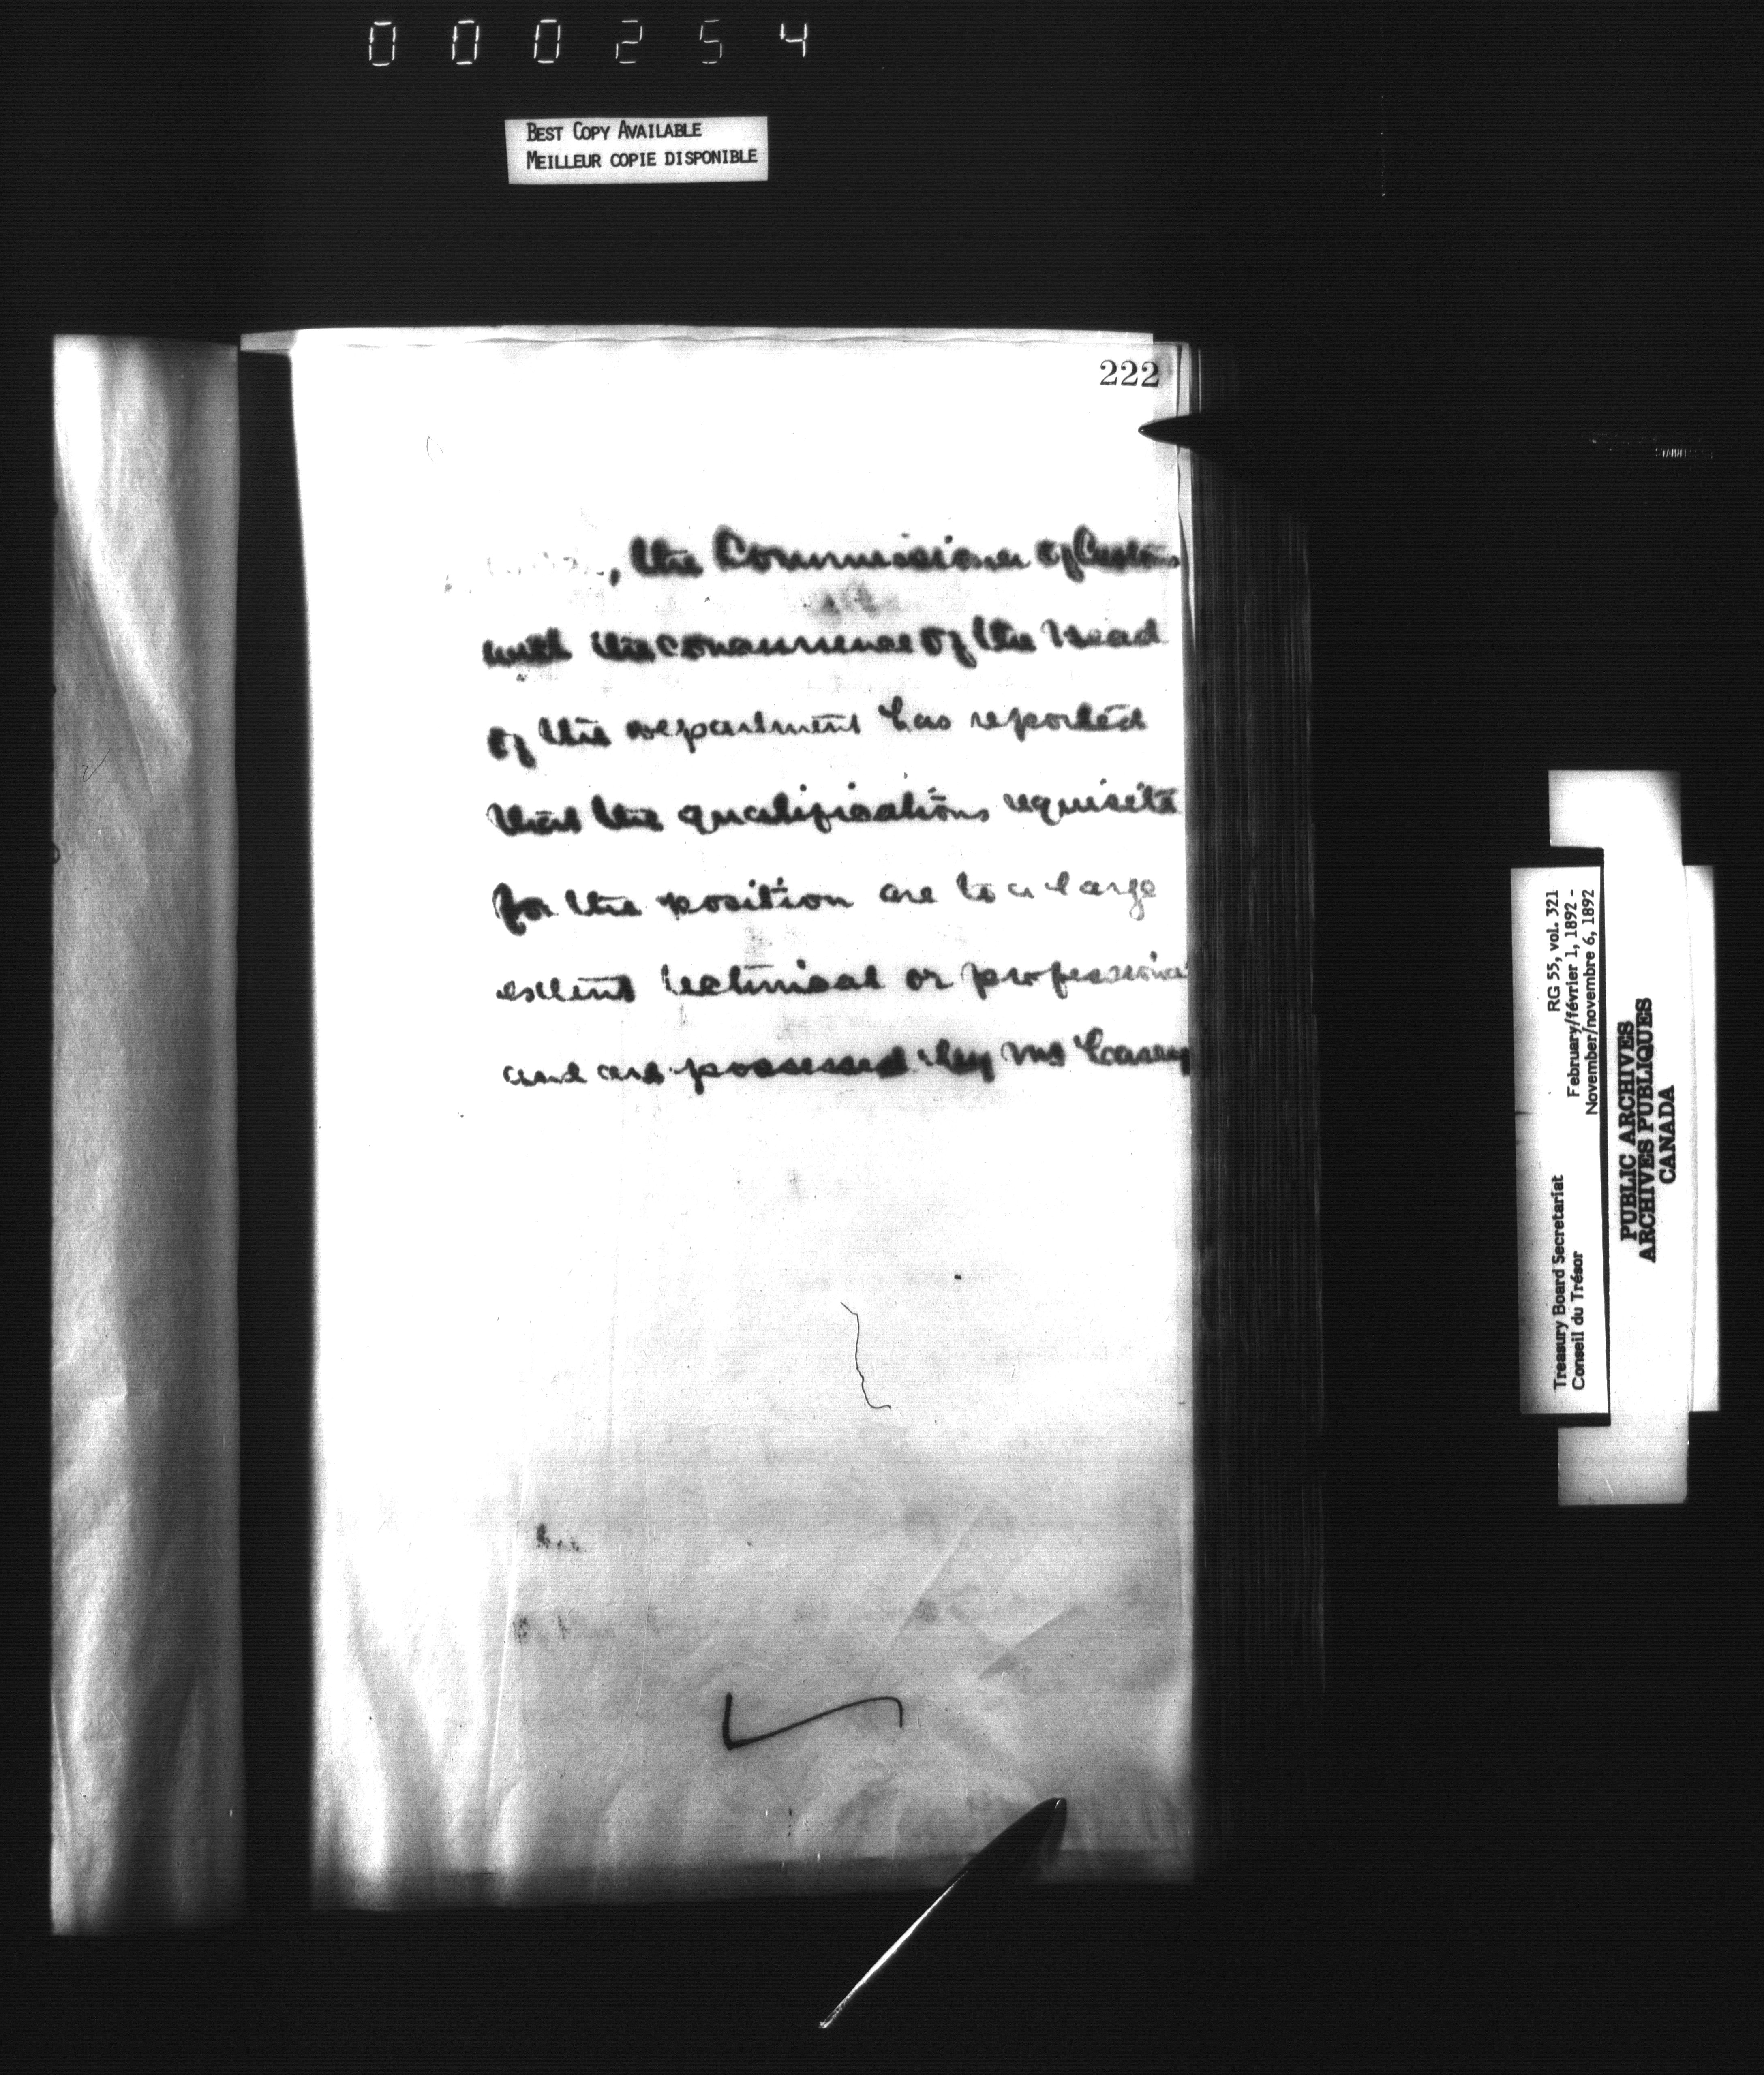 000254
BEST COPY AVAILABLE
MEILLEUR COPIE DISPONIBLE
222
, the Commissioner of Customs
with the concurrence of the Head
of the department has reported
that the qualifications requisite
for the position are to a large
extent technical or professional
and are possessed by Mr Casey
Treasury Board Secretariat RG 55, vol. 321
Conseil du Trésor February/février 1, 1892 -
November/novembre 6, 1892
PUBLIC ARCHIVES
ARCHIVES PUBLIQUES
CANADA